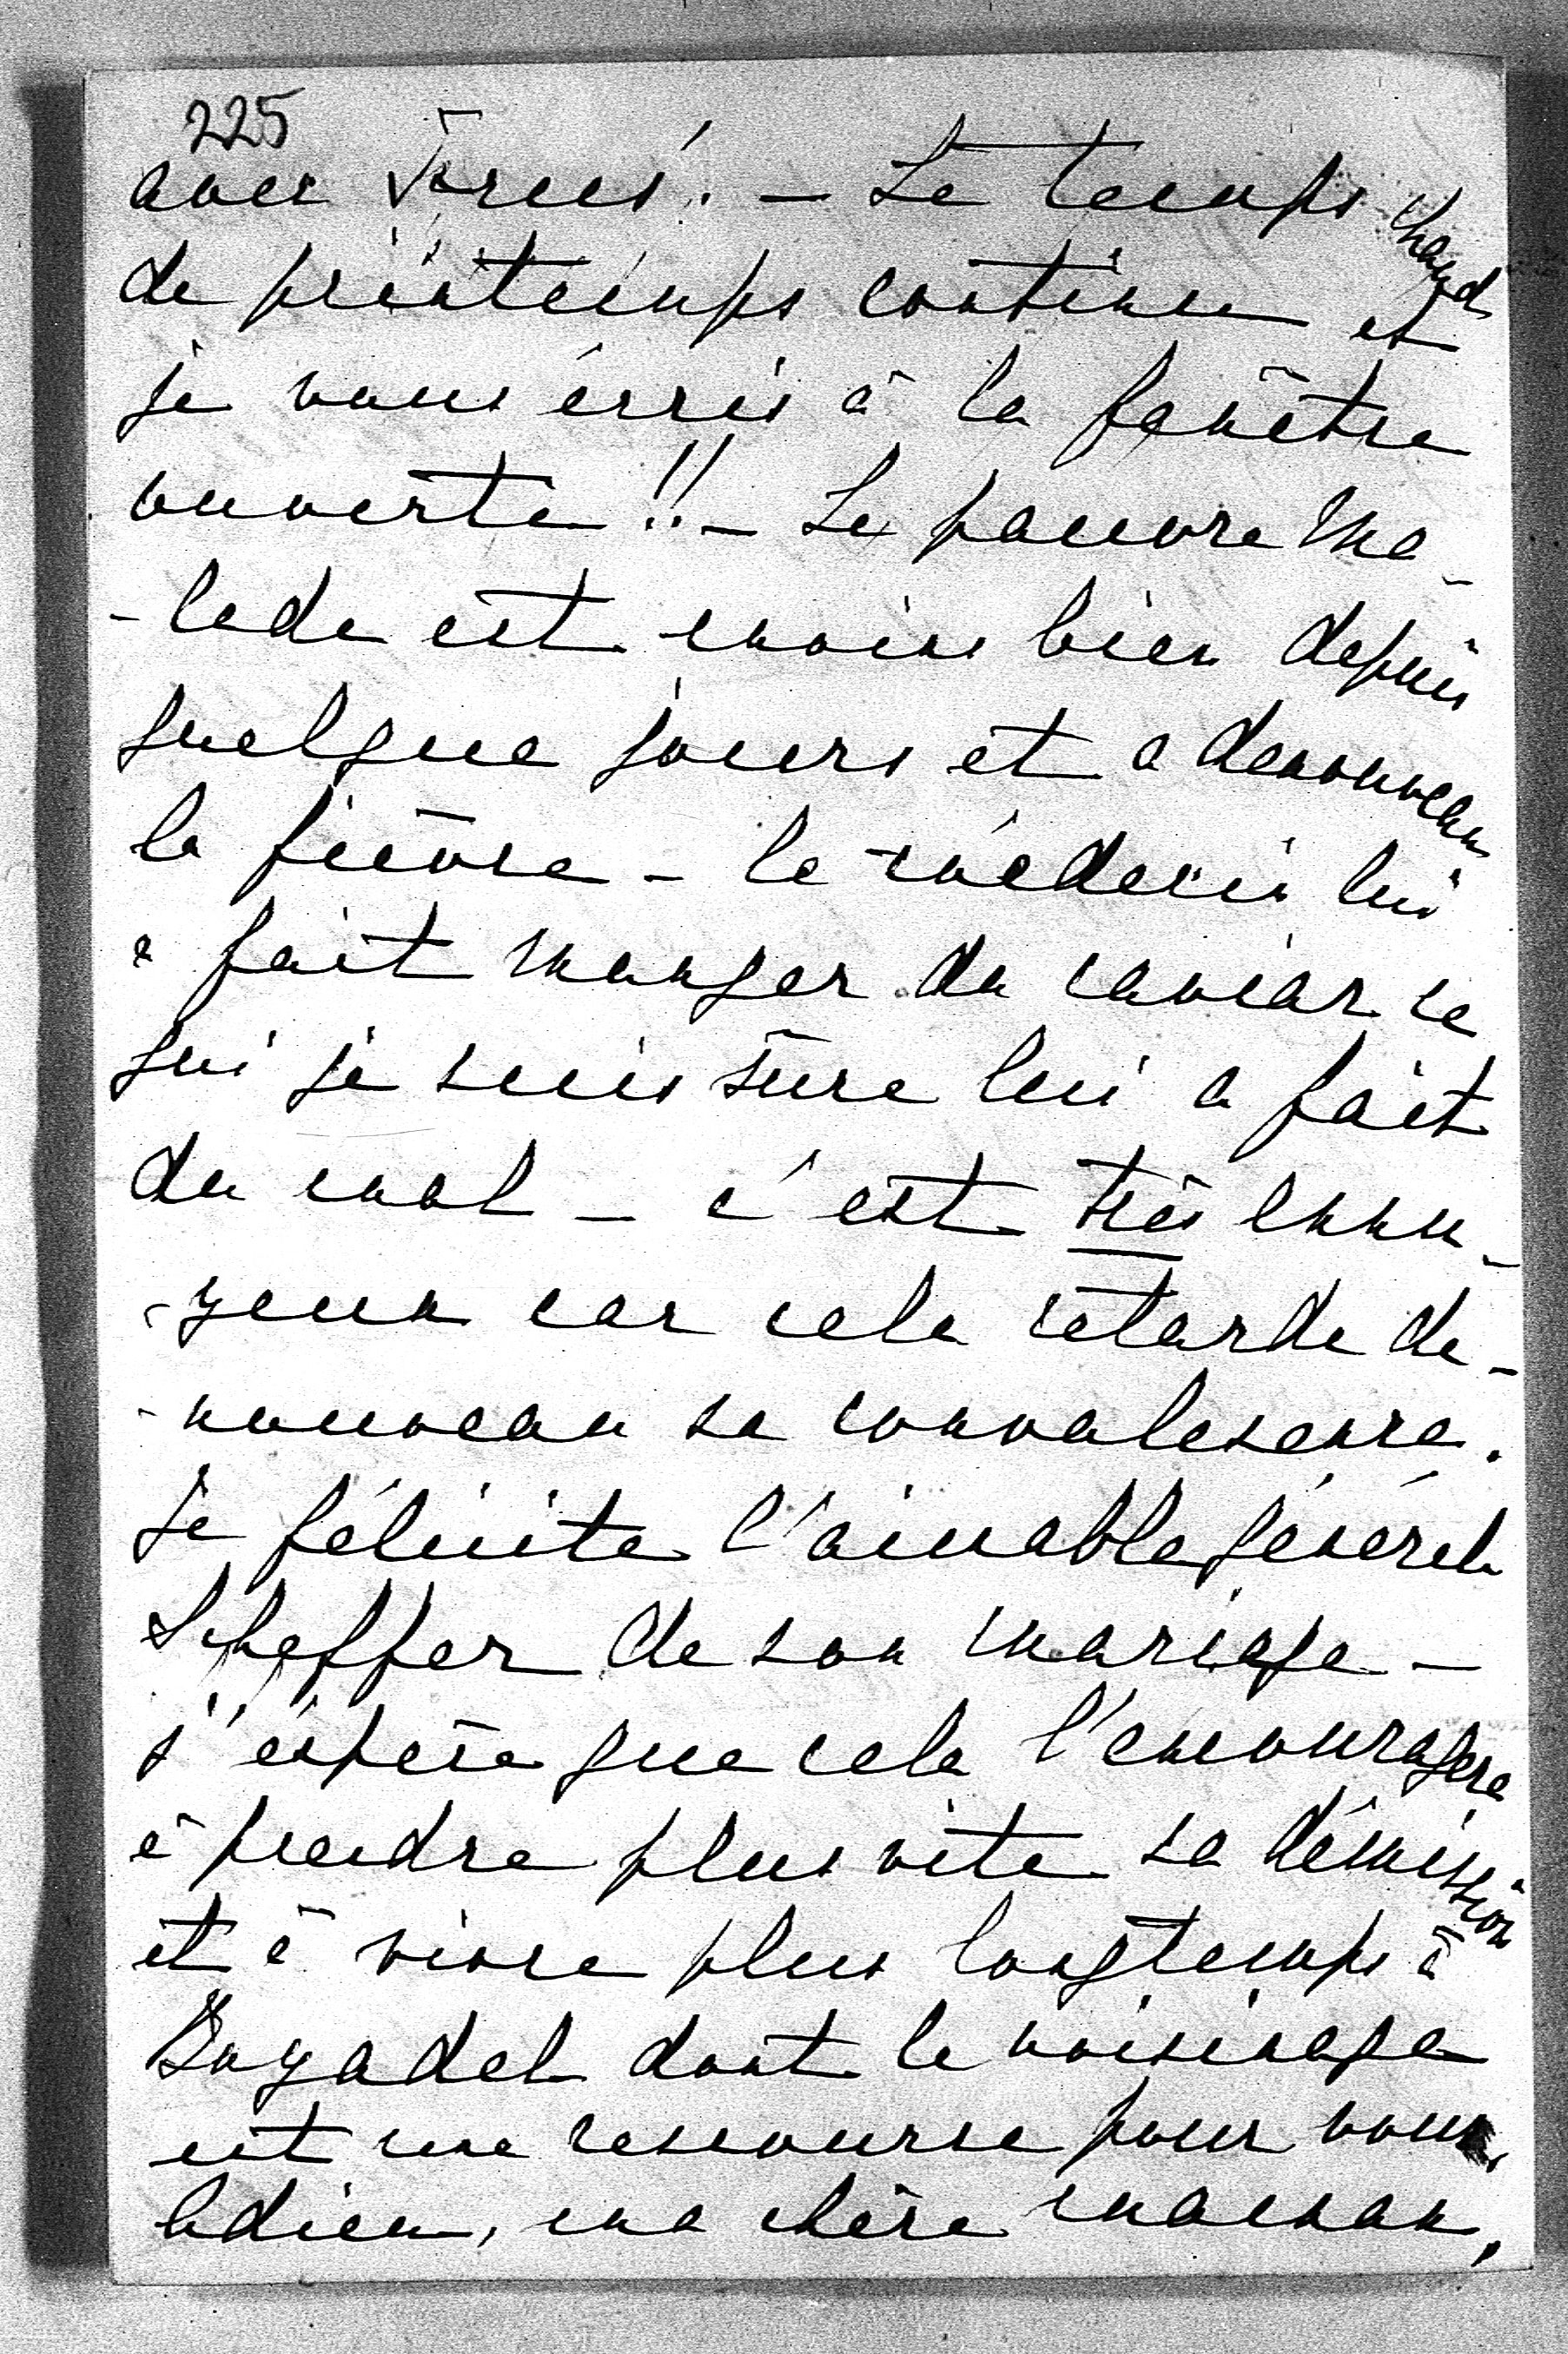 225
avec                . — Le temps chaud
de printemps continue et
je vous écris à la fenêtre
ouverte !! — Le pauvre ma-
-lade est moins bien depuis
quelque jours et a denouveau
la fièvre — le médecin lui
a fait manger du caviar ce
qui je suis sûre lui a fait
du mal — c'est très ennu-
-yeux car cela retarde de-
-nouveau sa convalescence.
Je félicite l'aimable général
Scheffer de son mariage —
j'éspère que cela l'encouragera
à prendre plus vite sa démission
et à vivre plus longtemps à
Bugadel dont le voisinage
est une ressource pour vous.
Adieu, ma chère maman,